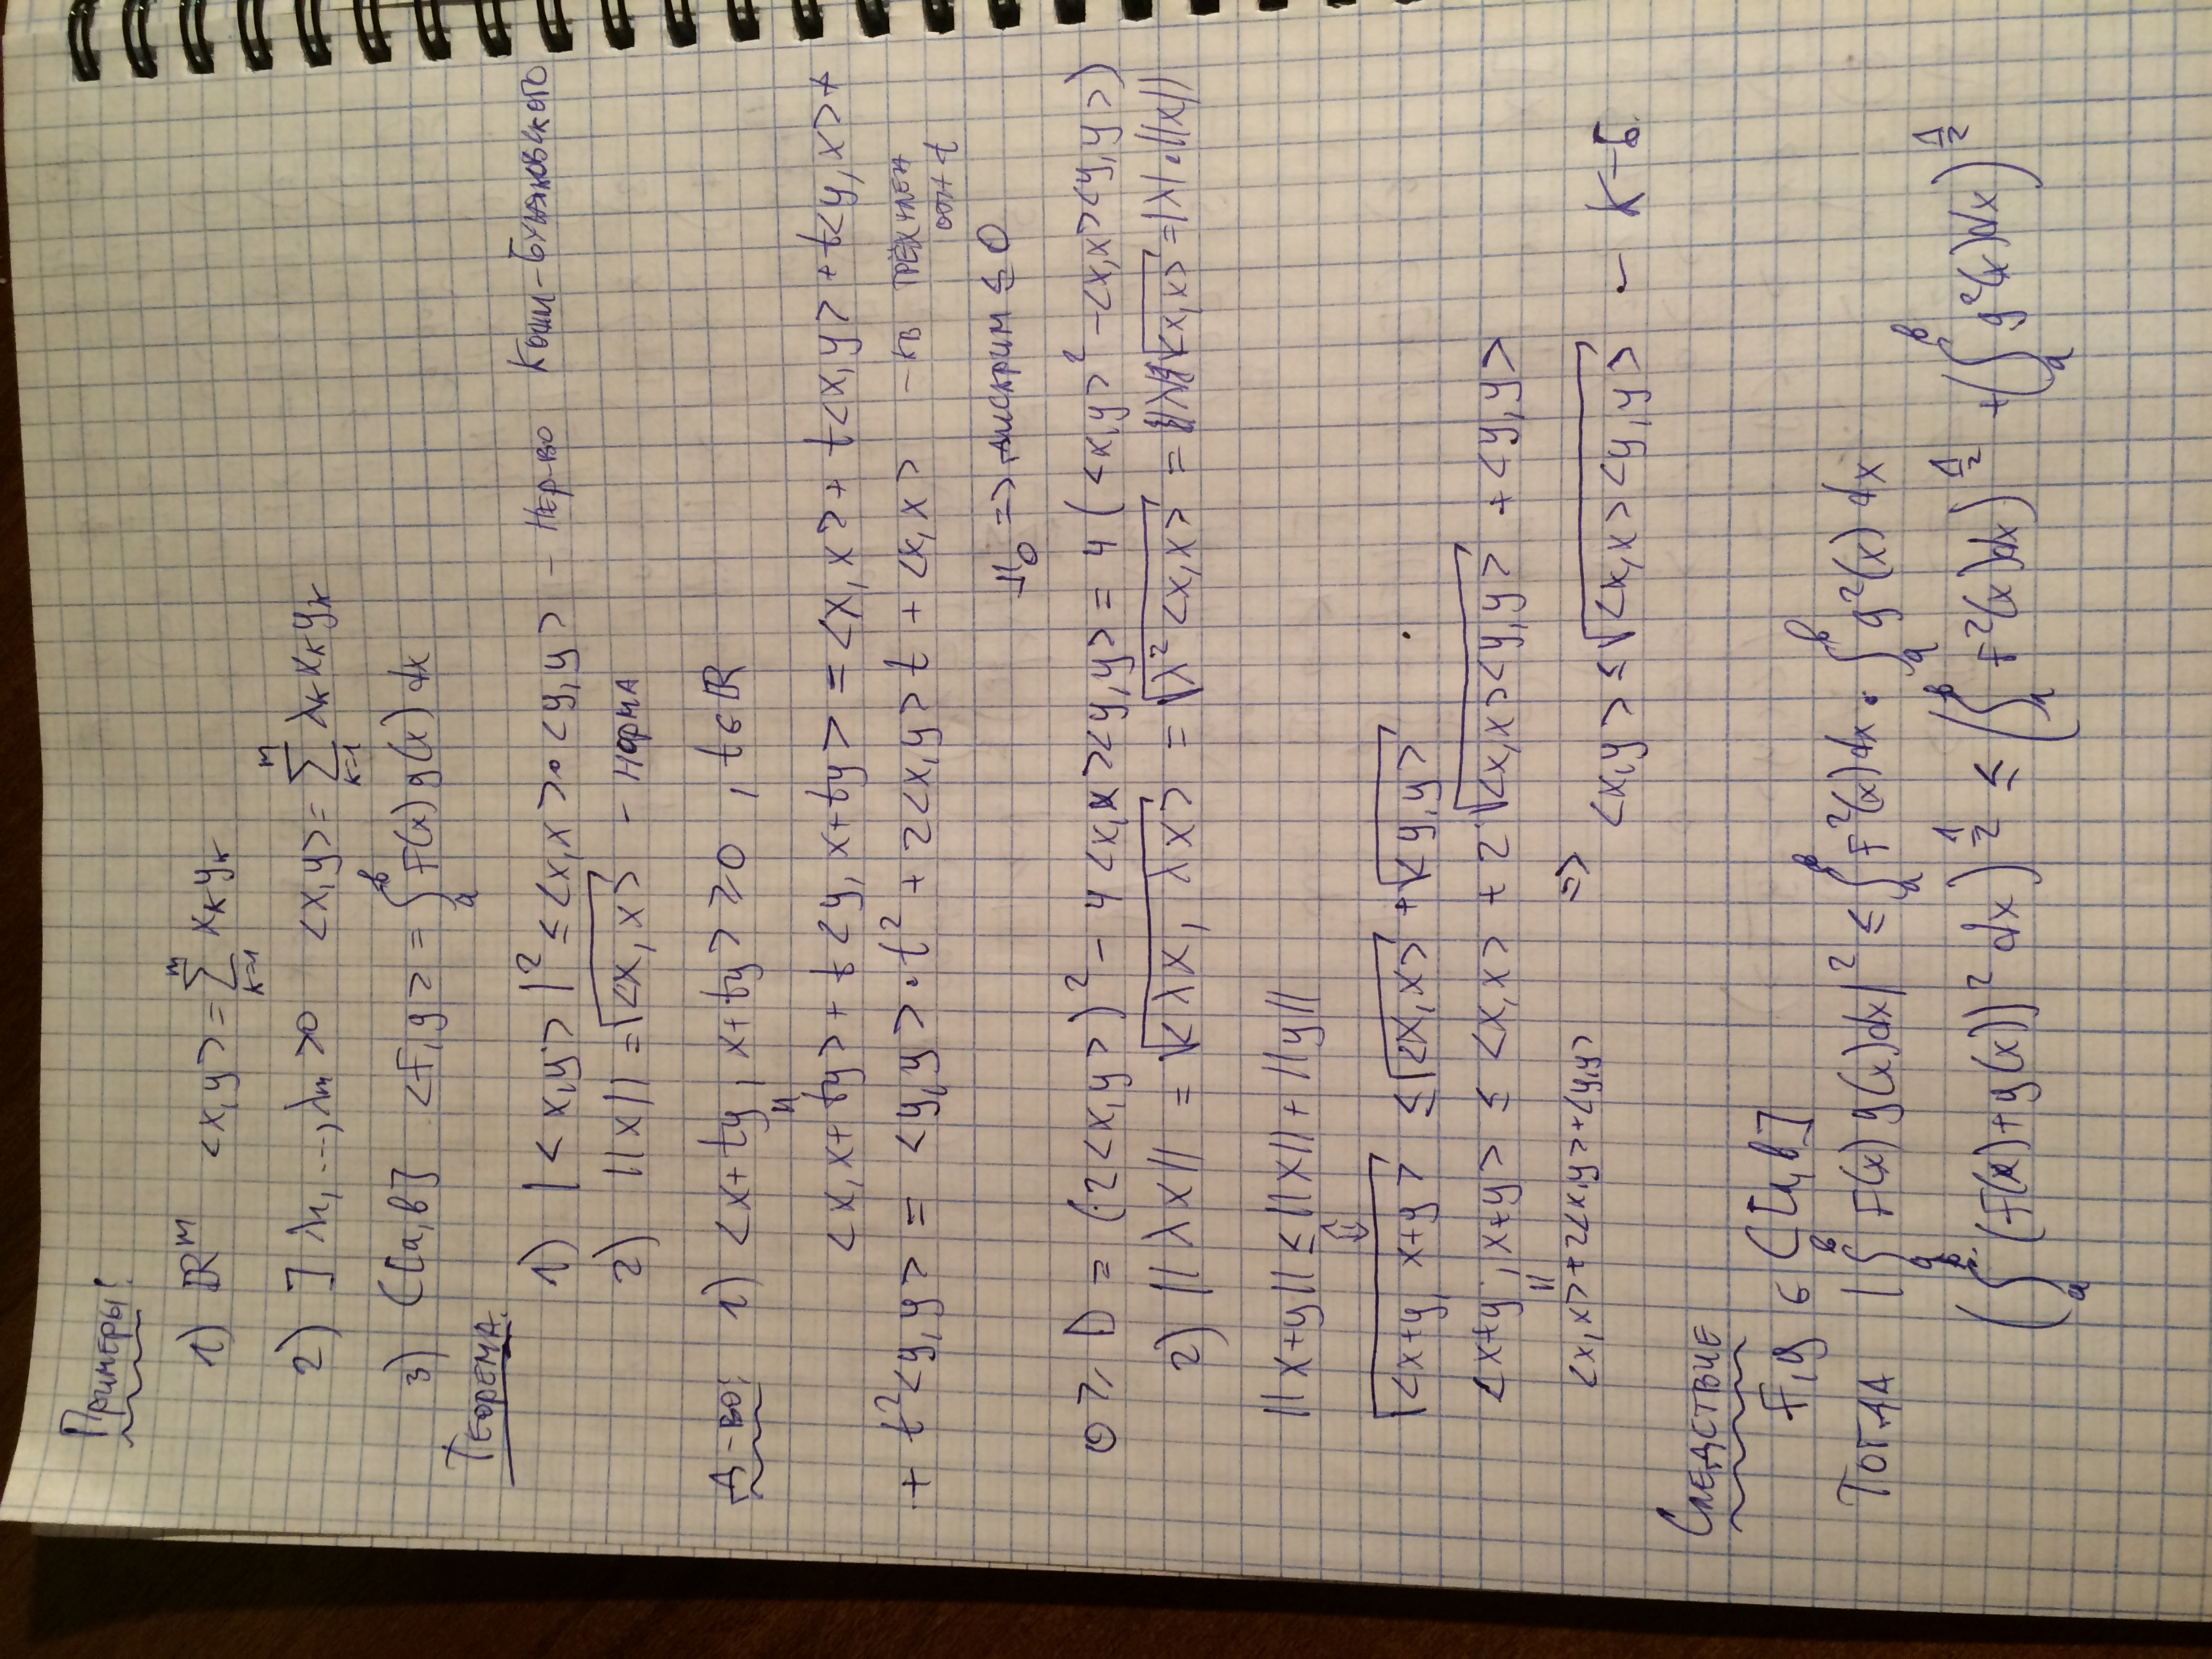 Примеры:
1) ℝ^m <x,y> = ∑_{k=1}^{m} x_k y_k
2) ] λ_1, ..., λ_m > 0 <x,y> = ∑_{k=1}^{m} λ_k x_k y_k
3) C[a,b] <f,g> = ∫_a^b f(x) g(x) dx
Теорема.
1) |<x,y>|² ≤ <x,x>·<y,y> - нер-во Коши-Буняковского
2) ||x|| = √<x,x> - норма
Д-во: 1) <x+ty, x+ty> ≥ 0, t ∈ ℝ
||
<x, x+ty> + t<y, x+ty> = <x,x> + t<x,y> + t<y,x> +
+ t²<y,y> = <y,y>·t² + 2<x,y>t + <x,x> - кв трёхчлен
≥ 0 => дискрим ≤ 0
0 ≥ D = (2<x,y>)² - 4<x,x><y,y> = 4(<x,y>² - <x,x><y,y>)
2) ||λx|| = √<λx, λx> = √λ²<x,x> = |λ|√<x,x> = |λ|·||x||
||x+y|| ≤ ||x|| + ||y||
⇕
√<x+y, x+y> ≤ √<x,x> + √<y,y>
<x+y, x+y> ≤ <x,x> + 2√<x,x><y,y> + <y,y>
||
<x,x> + 2<x,y> + <y,y> =>
<x,y> ≤ √<x,x><y,y> - К-Б.
Следствие
f,g ∈ C[a,b]
Тогда |∫_a^b f(x) g(x) dx|² ≤ ∫_a^b f²(x) dx · ∫_a^b g²(x) dx
(∫_a^b (f(x)+g(x))² dx)^{1/2} ≤ (∫_a^b f²(x) dx)^{1/2} + (∫_a^b g²(x) dx)^{1/2}